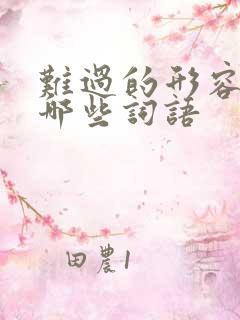 難過的形容
哪些詞語
田農1